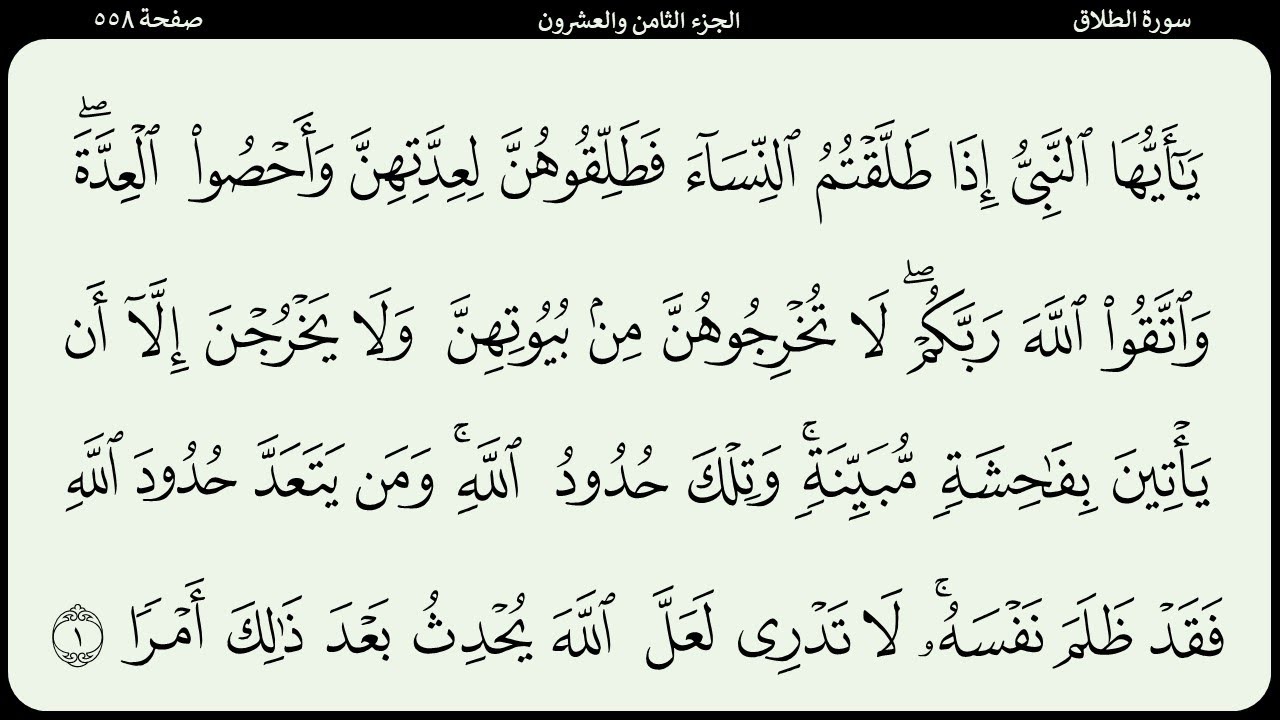 سورة الطلاق
الجزء الثامن والعشرون
صفحة ٥٥٨
يَـٰٓأَيُّهَا ٱلنَّبِىُّ إِذَا طَلَّقْتُمُ ٱلنِّسَآءَ فَطَلِّقُوهُنَّ لِعِدَّتِهِنَّ وَأَحْصُوا۟ ٱلْعِدَّةَ ۖ
وَٱتَّقُوا۟ ٱللَّهَ رَبَّكُمْ ۖ لَا تُخْرِجُوهُنَّ مِنۢ بُيُوتِهِنَّ وَلَا يَخْرُجْنَ إِلَّآ أَن
يَأْتِينَ بِفَـٰحِشَةٍ مُّبَيِّنَةٍ ۚ وَتِلْكَ حُدُودُ ٱللَّهِ ۚ وَمَن يَتَعَدَّ حُدُودَ ٱللَّهِ
فَقَدْ ظَلَمَ نَفْسَهُۥ ۚ لَا تَدْرِى لَعَلَّ ٱللَّهَ يُحْدِثُ بَعْدَ ذَٰلِكَ أَمْرًا ١